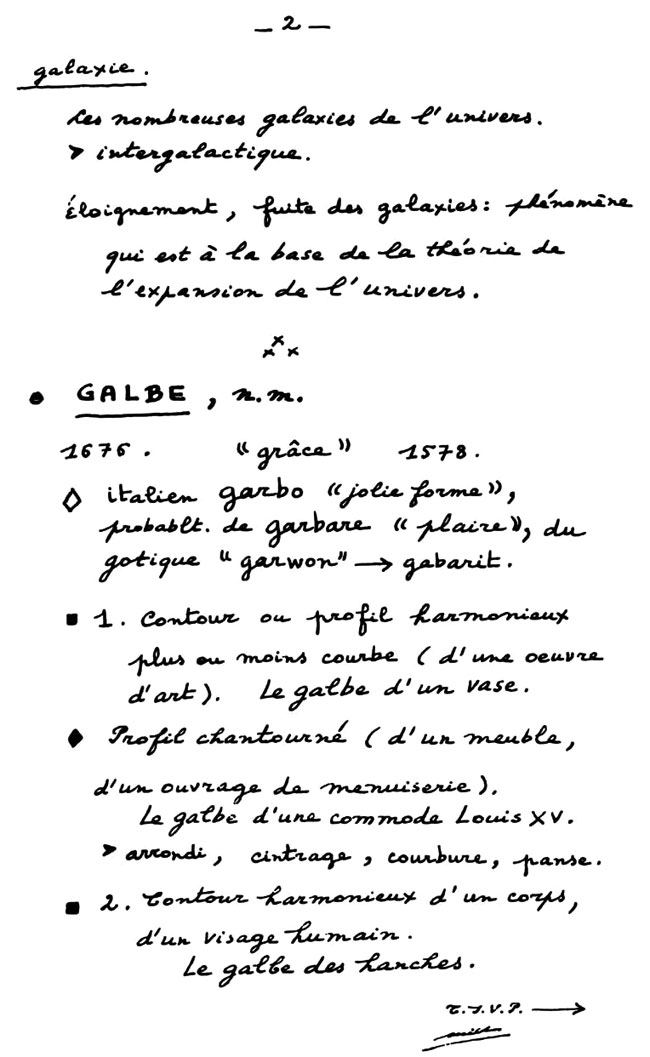 – 2 –
galaxie.
Les nombreuses galaxies de l'univers.
➤ intergalactique.
Éloignement, fuite des galaxies : phénomène
qui est à la base de la théorie de
l'expansion de l'univers.
x x x
• GALBE, n.m.
1676. "grâce" 1578.
◊ italien garbo "jolie forme",
probablt. de garbare "plaire", du
gotique "garwon" → gabarit.
■ 1. Contour ou profil harmonieux
plus ou moins courbe (d'une oeuvre
d'art). Le galbe d'un vase.
♦ Profil chantourné (d'un meuble,
d'un ouvrage de menuiserie).
Le galbe d'une commode Louis XV.
➤ arrondi, cintrage, courbure, panse.
■ 2. Contour harmonieux d'un corps,
d'un visage humain.
Le galbe des hanches.
T.S.V.P. →